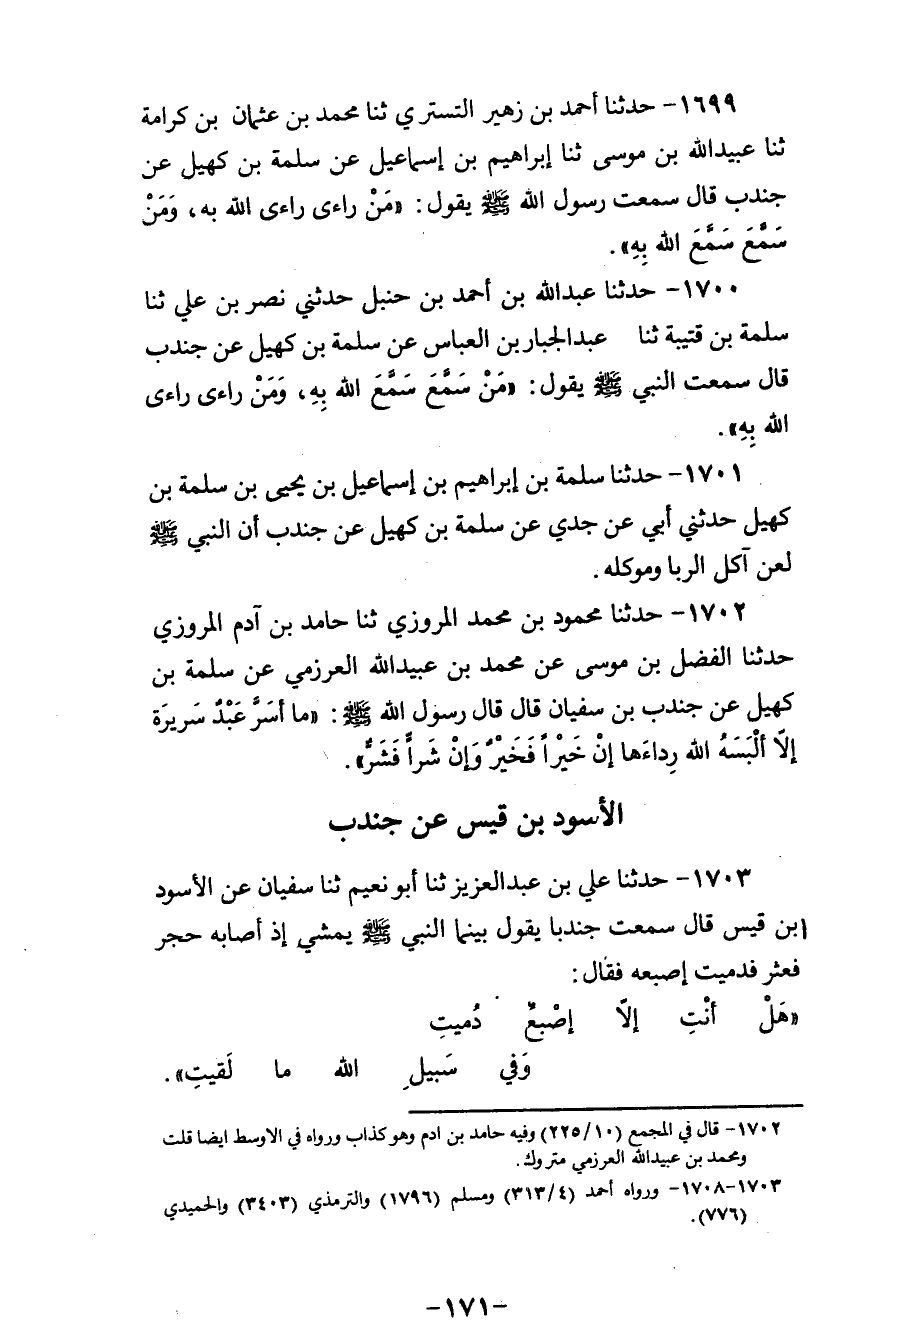 ١٦٩٩- حدثنا أحمد بن زهير التستري ثنا محمد بن عثمان بن كرامة
ثنا عبيدالله بن موسى ثنا إبراهيم بن إسماعيل عن سلمة بن كهيل عن
جندب قال سمعت رسول الله ﷺ يقول: «مَنْ راءى راءى الله به، وَمَنْ
سَمَّعَ سَمَّعَ الله بِهِ».
١٧٠٠- حدثنا عبدالله بن أحمد بن حنبل حدثني نصر بن علي ثنا
سلمة بن قتيبة ثنا عبدالجبار بن العباس عن سلمة بن كهيل عن جندب
قال سمعت النبي ﷺ يقول: «مَنْ سَمَّعَ سَمَّعَ الله بِهِ، وَمَنْ راءى راءى
الله بِهِ».
١٧٠١- حدثنا سلمة بن إبراهيم بن إسماعيل بن يحيى بن سلمة بن
كهيل حدثني أبي عن جدي عن سلمة بن كهيل عن جندب أن النبي ﷺ
لعن آكل الربا وموكله.
١٧٠٢- حدثنا محمود بن محمد المروزي ثنا حامد بن آدم المروزي
حدثنا الفضل بن موسى عن محمد بن عبيدالله العرزمي عن سلمة بن
كهيل عن جندب بن سفيان قال قال رسول الله ﷺ: «ما أسَرَّ عَبْدٌ سَريرَة
إلاّ ألْبَسَهُ الله رِداءَها إنْ خَيْراً فَخَيْرٌ وَإنْ شَراً فَشَرٌّ».
الأسود بن قيس عن جندب
١٧٠٣- حدثنا علي بن عبدالعزيز ثنا أبو نعيم ثنا سفيان عن الأسود
ابن قيس قال سمعت جندبا يقول بينما النبي ﷺ يمشي إذ أصابه حجر
فعثر فدميت إصبعه فقال:
«هَلْ أنْتِ إلاّ إصْبعٌ دُميتِ
وَفي سَبيلِ الله ما لَقيتِ».
١٧٠٢- قال في المجمع (٢٢٥/١٠) وفيه حامد بن ادم وهو كذاب ورواه في الاوسط ايضا قلت
ومحمد بن عبيدالله العرزمي متروك.
١٧٠٣-١٧٠٨- ورواه أحمد (٣١٣/٤) ومسلم (١٧٩٦) والترمذي (٣٤٠٣) والحميدي
(٧٧٦).
-١٧١-